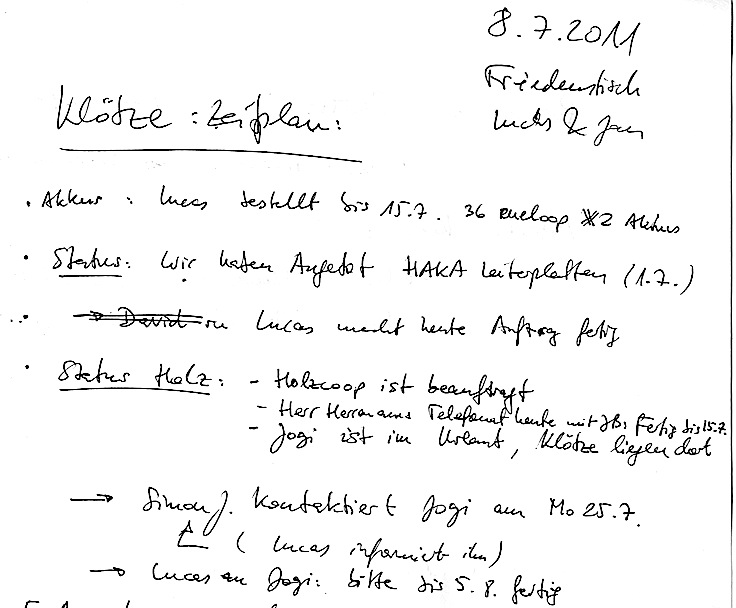 8.7.2011
Friedenstisch
Lucas & Jan
Klötze : Zeitplan:
• Akkus : Lucas bestellt bis 15.7. 36 eneloop 2 Akkus
• Status: Wir haben Angebot HAKA Leiterplatten (1.7.)
• Lucas macht heute Auftrag fertig
• Status Holz: - Holzcoop ist beauftragt
- Herr Hermanns Telefonat heute mit JB: Fertig bis 15.7.
- Jogi ist im Urlaub, Klötze liegen dort
→ Simon J. kontaktiert Jogi am Mo 25.7.
(Lucas informiert ihn)
→ Lucas an Jogi: bitte bis 5.8. fertig